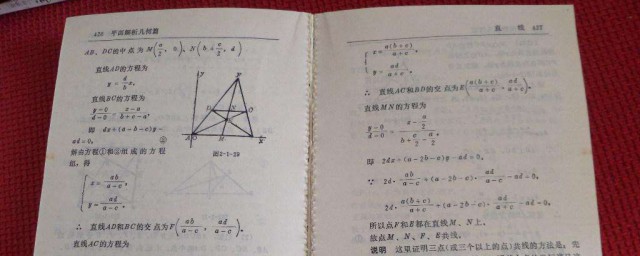 436 平面解析几何篇
AB、DC的中点为M(a/2, 0)、N(b+c/2, d)
直线AD的方程为
y=d/b x,
直线BC的方程为
(y-0)/(d-0)=(x-a)/(b+c-a),
即 dx+(a-b-c)y-
ad=0。 ②
解由方程①和②组成的方程
组,得
x=ab/(a-c),
y=ad/(a-c)。
∴ 直线AD和BC的交点为F(ab/(a-c), ad/(a-c))。
直线AC的方程为
y
F
D N C
E
A O M B x
图2-1-29
直 线 437
x=a(b+c)/(a+c),
y=ad/(a+c)。
∴ 直线AC和BD的交点为E(a(b+c)/(a+c), ad/(a+c))。
直线MN的方程为
(y-0)/(d-0)=(x-a/2)/(b+c/2-a/2),
即 2dx+(a-2b-c)y-ad=0。
∵ 2d·ab/(a-c)+(a-2b-c)·ad/(a-c)-ad=0,
2d·a(b+c)/(a+c)+(a-2b-c)·ad/(a+c)-ad=0。
所以点F和E都在直线M、N上。
故点M、N、F、E共线。
说明 这里证明三点(或三个以上的点)共线的方法是,先